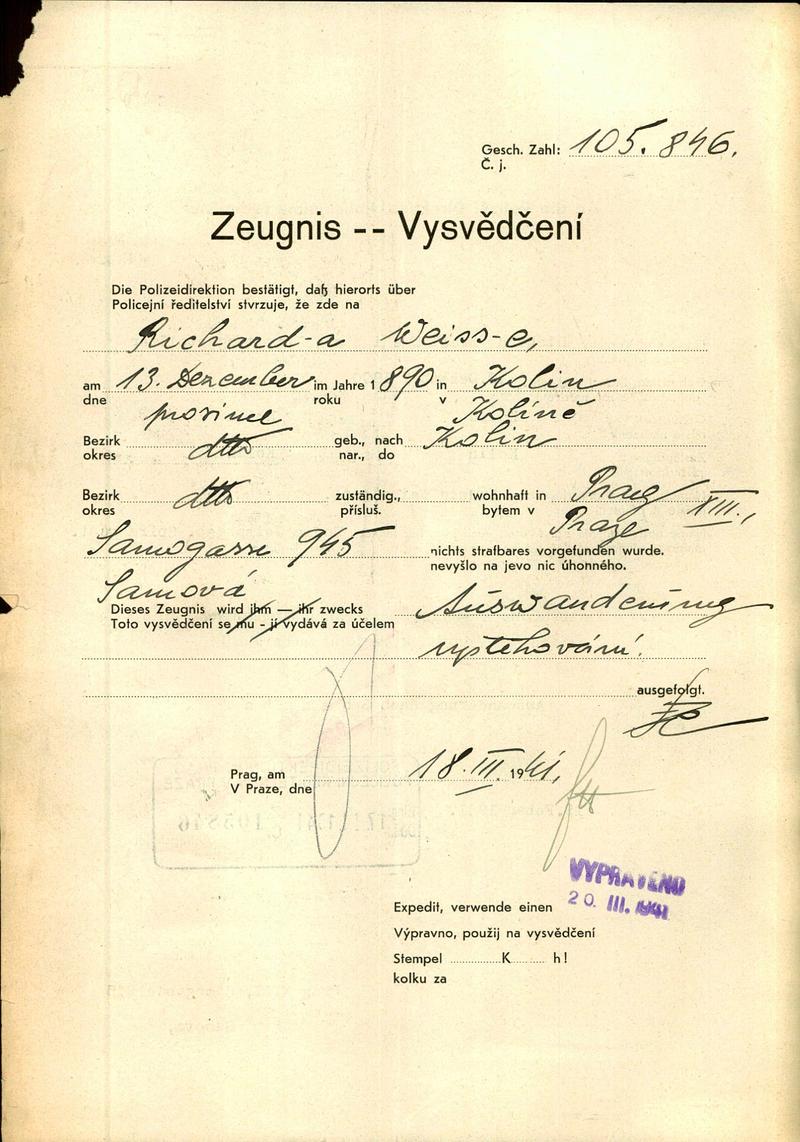 Gesch. Zahl: 105.846.
Č. j.
Zeugnis -- Vysvědčení
Die Polizeidirektion bestätigt, daß hierorts über
Policejní ředitelství stvrzuje, že zde na
Richard-a Weiss-e,
am 13. Dezember im Jahre 1890 in Kolin
dne prosince roku v Kolíně
Bezirk dtto geb., nach Kolin
okres nar., do
Bezirk dtto zuständig., wohnhaft in Prag XIII.,
okres přísluš. bytem v Praze
Samogasse 945 nichts strafbares vorgefunden wurde.
nevyšlo na jevo nic úhonného.
Samová
Dieses Zeugnis wird ihm — ihr zwecks Auswanderung
Toto vysvědčení se mu - jí vydává za účelem
vystěhování.
ausgefolgt.
Prag, am 18. III. 1941.
V Praze, dne
VYPRAVENO
20. III. 1941
Expedit, verwende einen
Výpravno, použij na vysvědčení
Stempel K h!
kolku za